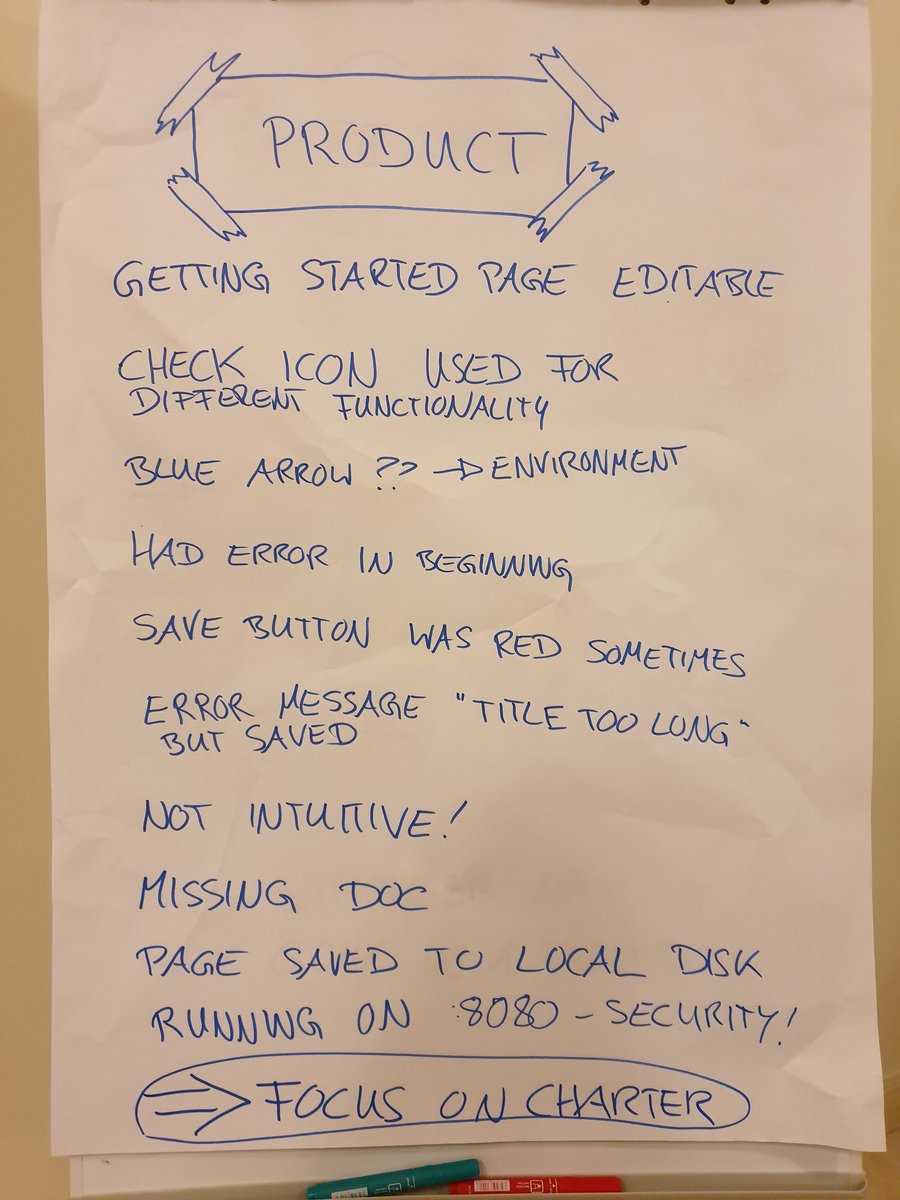 PRODUCT
GETTING STARTED PAGE EDITABLE
CHECK ICON USED FOR
DIFFERENT FUNCTIONALITY
BLUE ARROW ?? → ENVIRONMENT
HAD ERROR IN BEGINNING
SAVE BUTTON WAS RED SOMETIMES
ERROR MESSAGE "TITLE TOO LONG"
BUT SAVED
NOT INTUITIVE!
MISSING DOC
PAGE SAVED TO LOCAL DISK
RUNNING ON :8080 - SECURITY!
⇒ FOCUS ON CHARTER